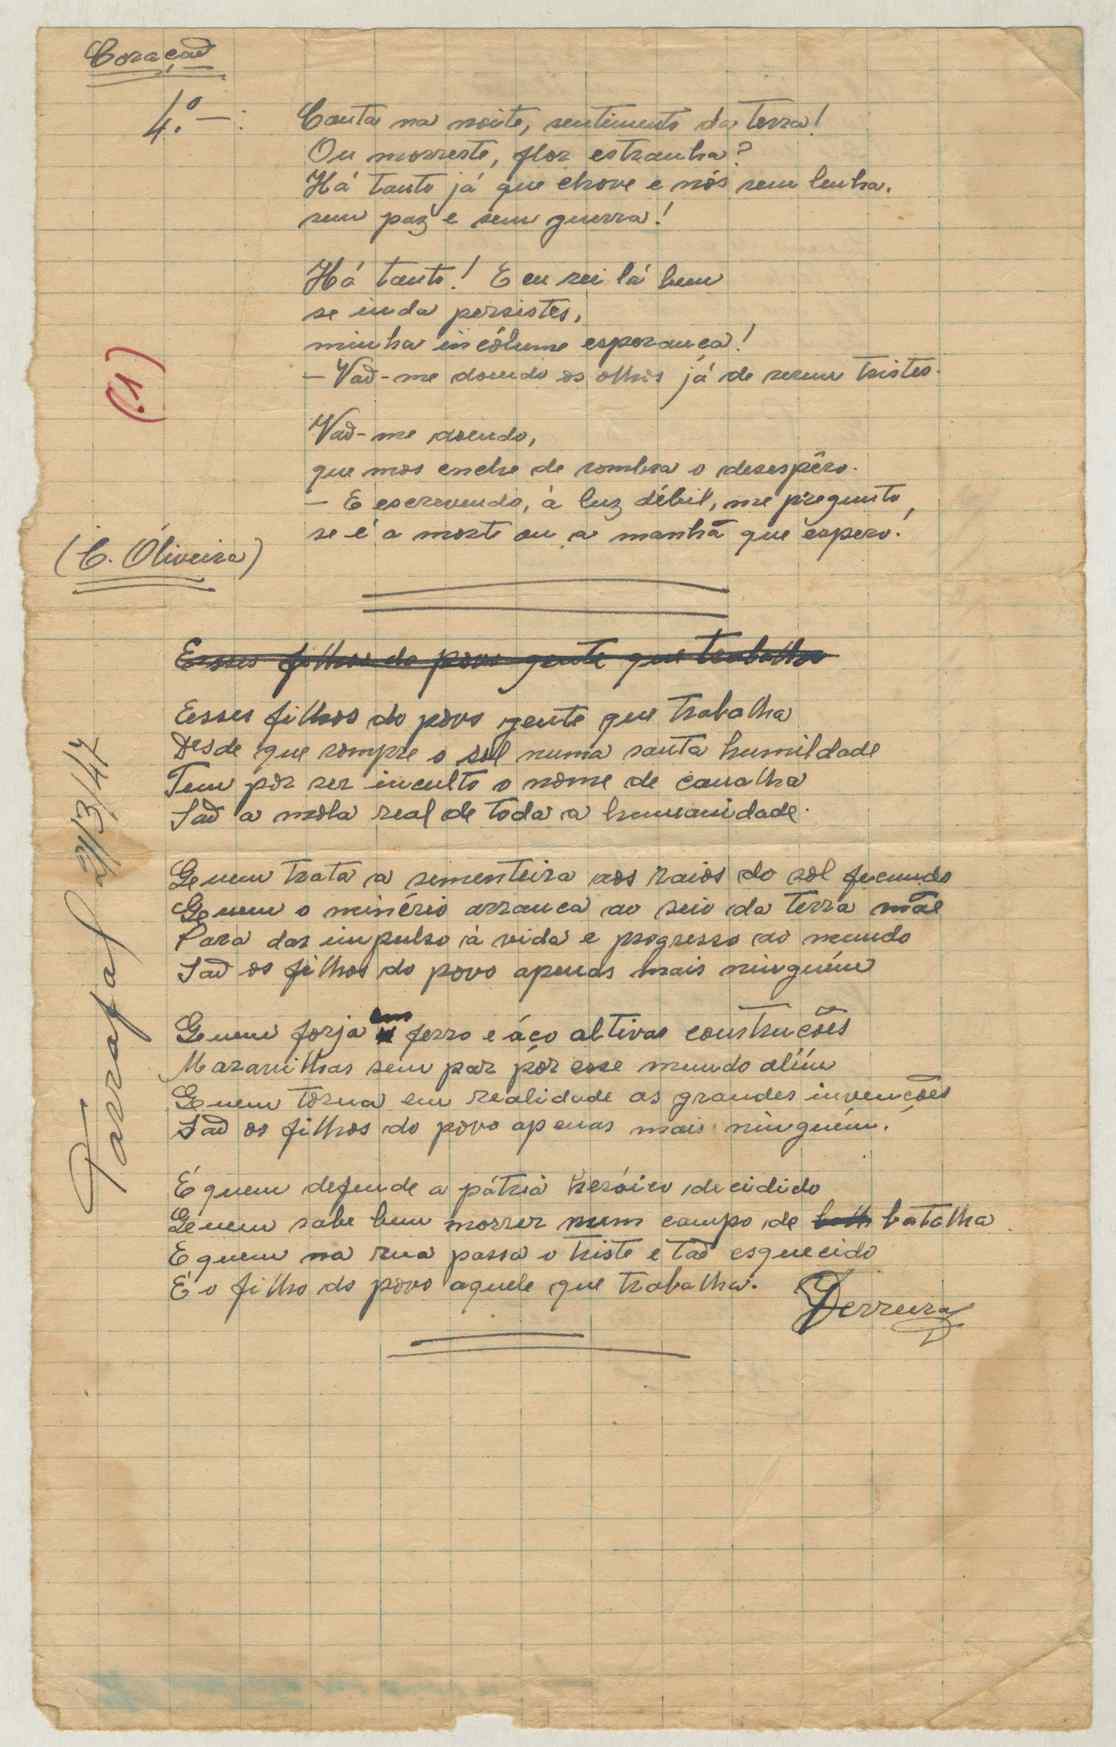 Coração
4.º —:
Canta na noite, sentimento da terra!
Ou morreste, flor estranha?
Há tanto já que chove e nós sem lenha,
sem paz e sem guerra!
Há tanto! E eu sei lá bem
se inda persistes,
minha incólume esperança!
— Vão-me doendo os olhos já de serem tristes.
(1)
Vão-me doendo,
que mos enche de sombra o desespêro.
— E escrevendo, à luz débil, me pregunto,
se é a morte ou a manhã que espero.
(C. Óliveira)
Esses filhos do povo gente que trabalha
Esses filhos do povo gente que trabalha
Desde que rompe o sol numa santa humildade
Tem por ser inculto o nome de canalha
São a mola real de toda a humanidade.
Quem trata a sementeira aos raios do sol fecundo
Quem o minério arranca ao seio da terra mãe
Para dar impulso à vida e progresso ao mundo
São os filhos do povo apenas mais ninguém
Quem forja em ferro e áço altivas construções
Maravilhas sem par pór esse mundo além
Quem torna em realidade as grandes invenções
São os filhos do povo apenas mais ninguém.
É quem defende a pátria heróico decidido
Quem sabe bem morrer num campo de bath batalha
E quem na rua passa o triste e tão esquecido
É o filho do povo aquele que trabalha.
Ferreira
Tarrafal 2/3/47